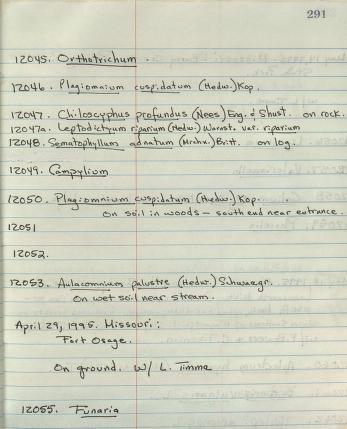 291
12045. Orthotrichum.
12046. Plagiomnium cuspidatum (Hedw.) Kop.
12047. Chiloscyphus profundus (Nees) Eng. & Shust. on rock.
12047a. Leptodictyum riparium (Hedw.) Warnst. var. riparium
12048. Sematophyllum adnatum (Michx.) Britt. on log.
12049. Campylium
12050. Plagiomnium cuspidatum (Hedw.) Kop.
on soil in woods – south end near entrance.
12051
12052.
12053. Aulacomnium palustre (Hedw.) Schwaegr.
On wet soil near stream.
April 29, 1995. Missouri:
Fort Osage.
On ground. w/ L. Timme
12055. Funaria